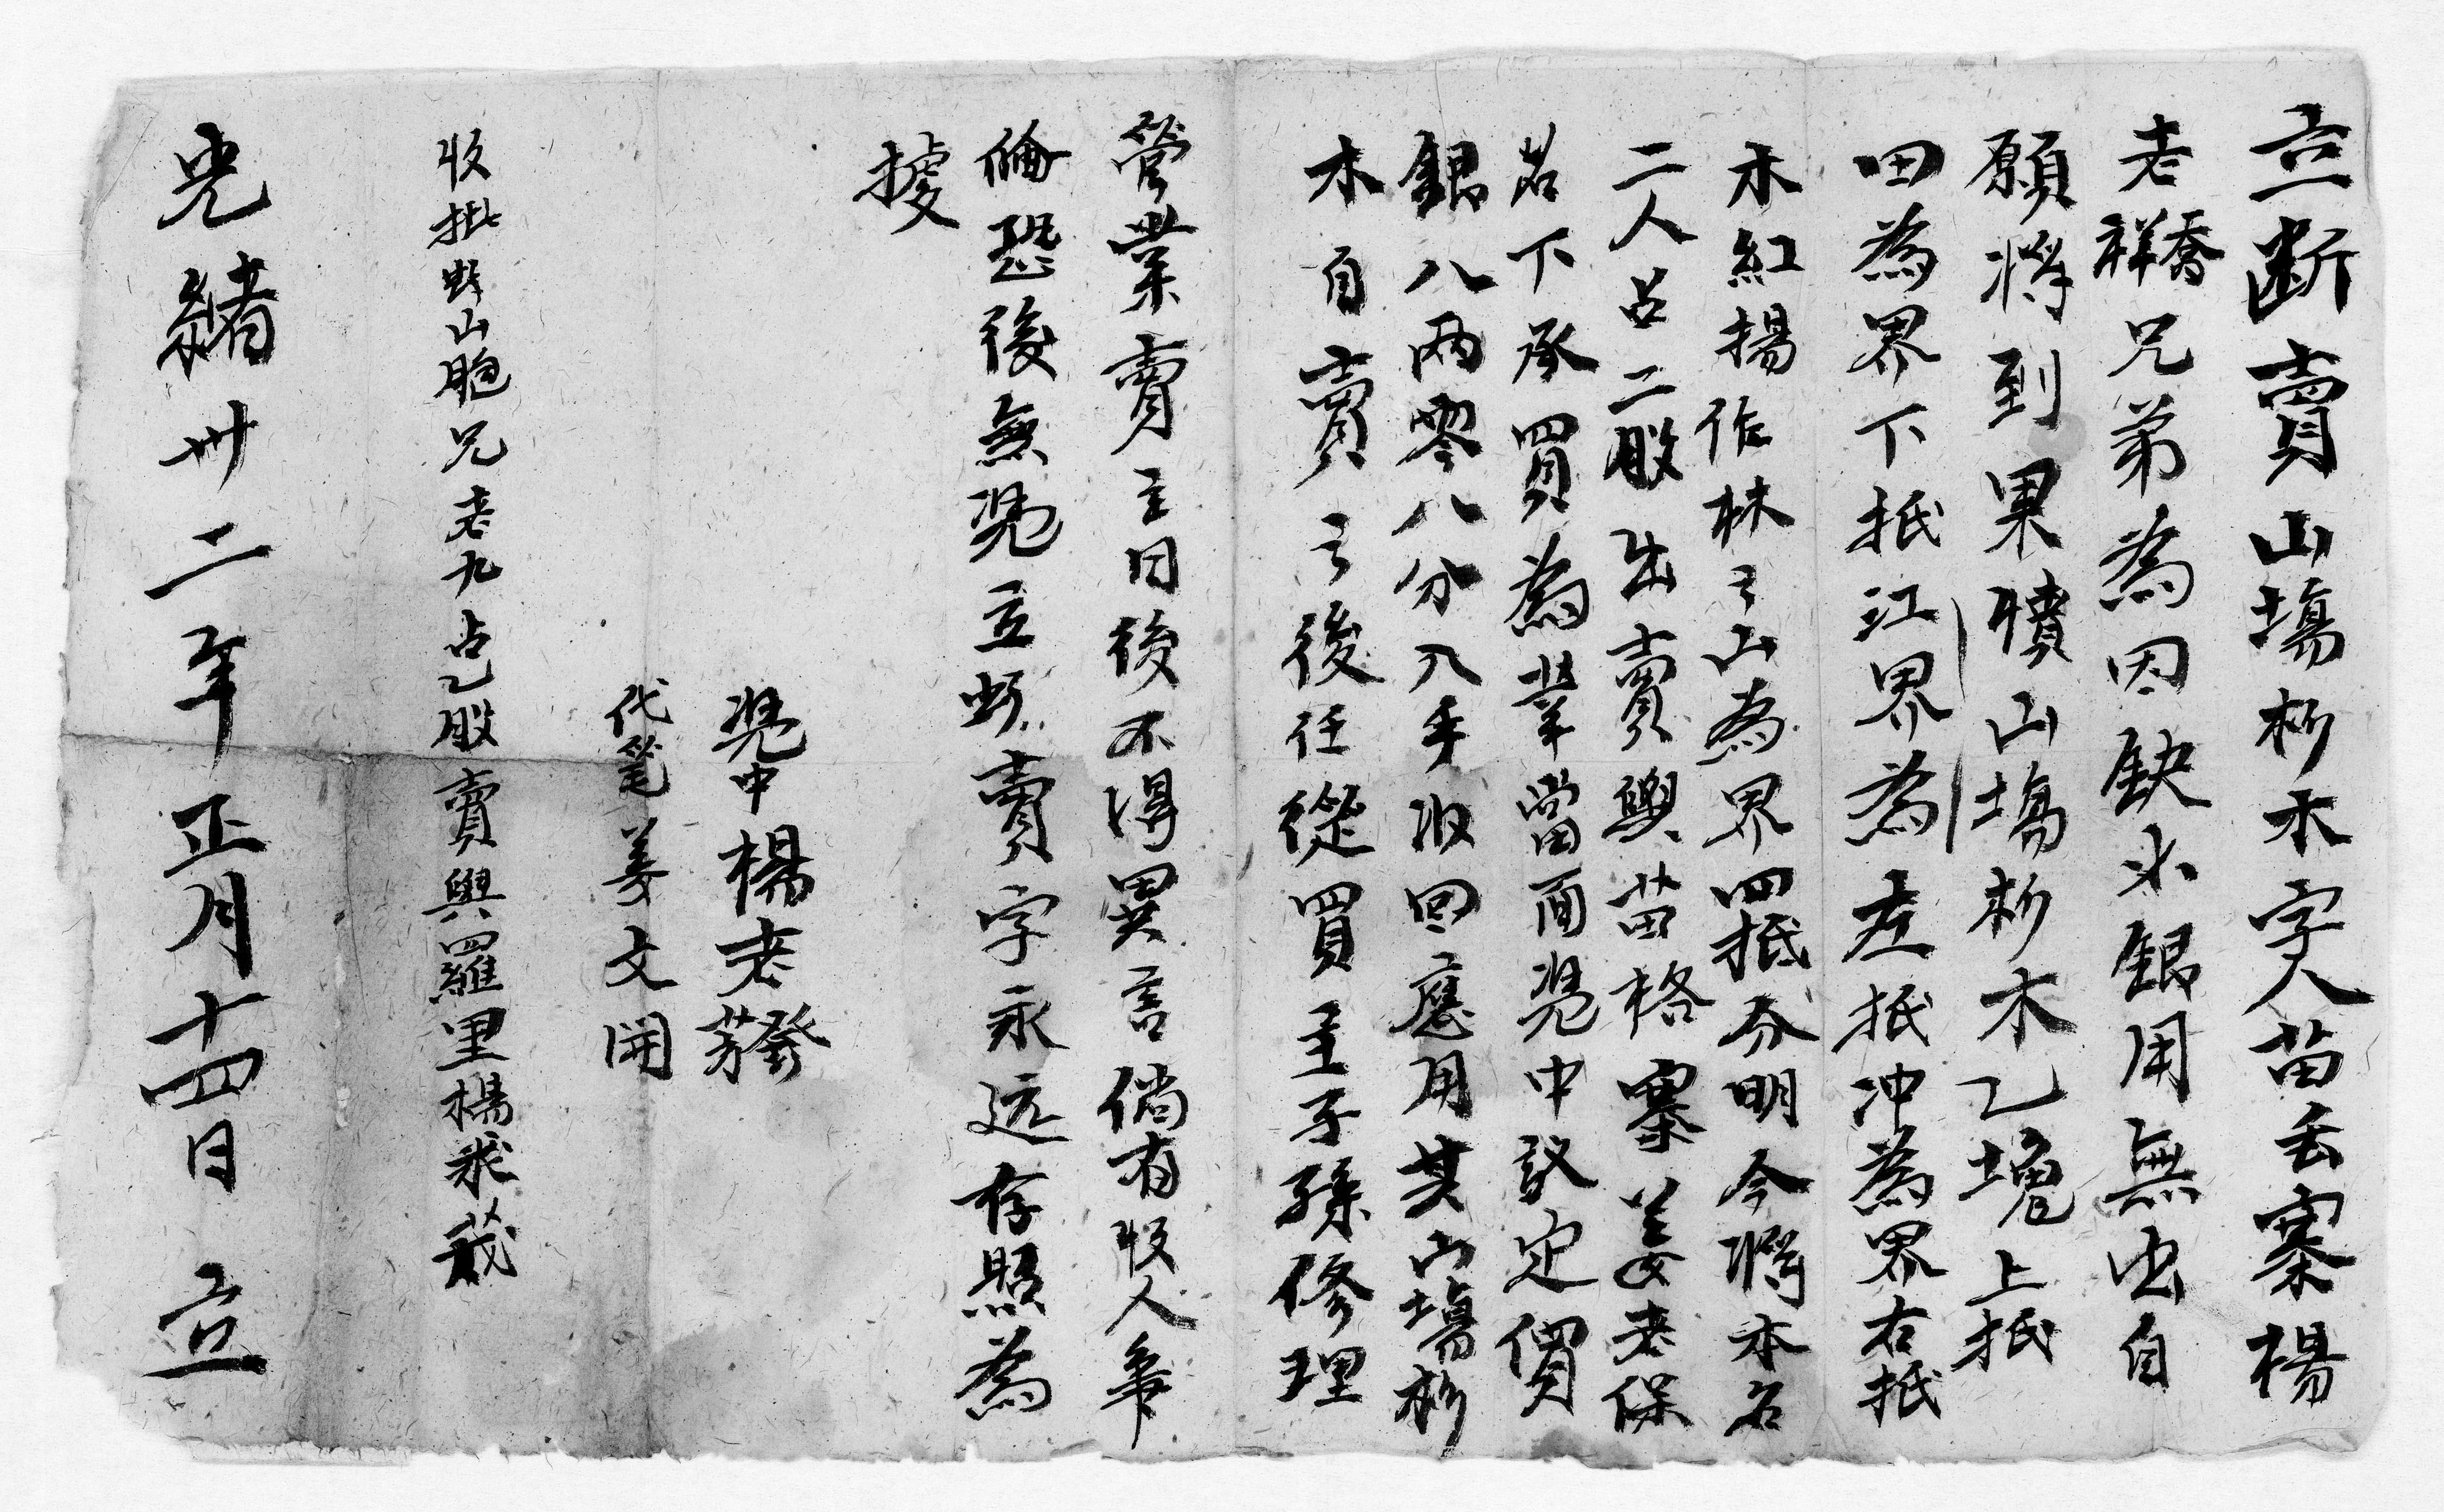 立断賣山塲杉木字人苗丢寨楊
老喬祥兄弟為因缺少銀用無出自
願将到果犢山塲杉木乙塊上抵
田為界下抵江界為左抵冲為界右抵
木紅揚作林之山為界四抵分明今將本名
二人占二股出賣與苗格寨姜老保
名下承買為業當面凴中議定價
銀八両零八分入手收回應用其山塲杉
木自賣之後任從買主子孫修理
管業賣主日後不得異言倘有收人争
倫恐後無凴立断賣字永远存照為
據
凴中楊老發
代筆姜文開
收批断山胞兄老九占乙股賣與羅里楊承我
光緒卅二年正月十四日立